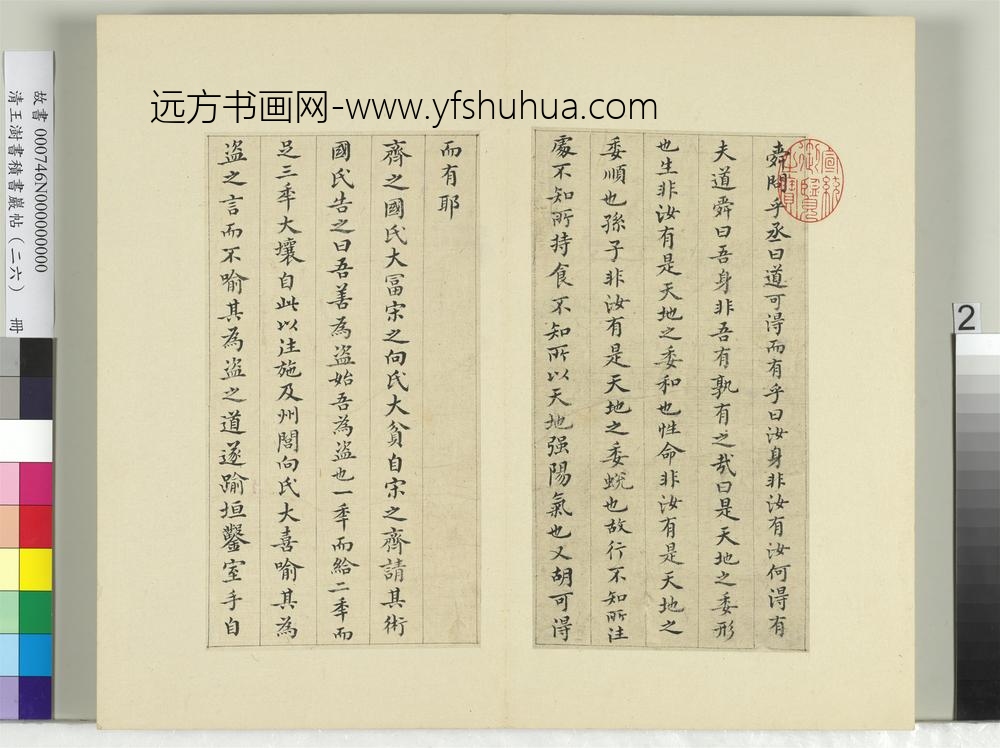 远方书画网-www.yfshuhua.com
故書 000746N000000000
清王澍書積書巖帖（二六） 冊
2
宣統御覽之寶
舜問乎丞曰道可得而有乎曰汝身非汝有汝何得有
夫道舜曰吾身非吾有孰有之哉曰是天地之委形
也生非汝有是天地之委和也性命非汝有是天地之
委順也孫子非汝有是天地之委蛻也故行不知所往
處不知所持食不知所以天地强陽氣也又胡可得
而有耶
齊之國氏大富宋之向氏大貧自宋之齊請其術
國氏告之曰吾善為盜始吾為盜也一年而給二年而
足三年大壤自此以往施及州閭向氏大喜喻其為
盜之言而不喻其為盜之道遂踰垣鑿室手自